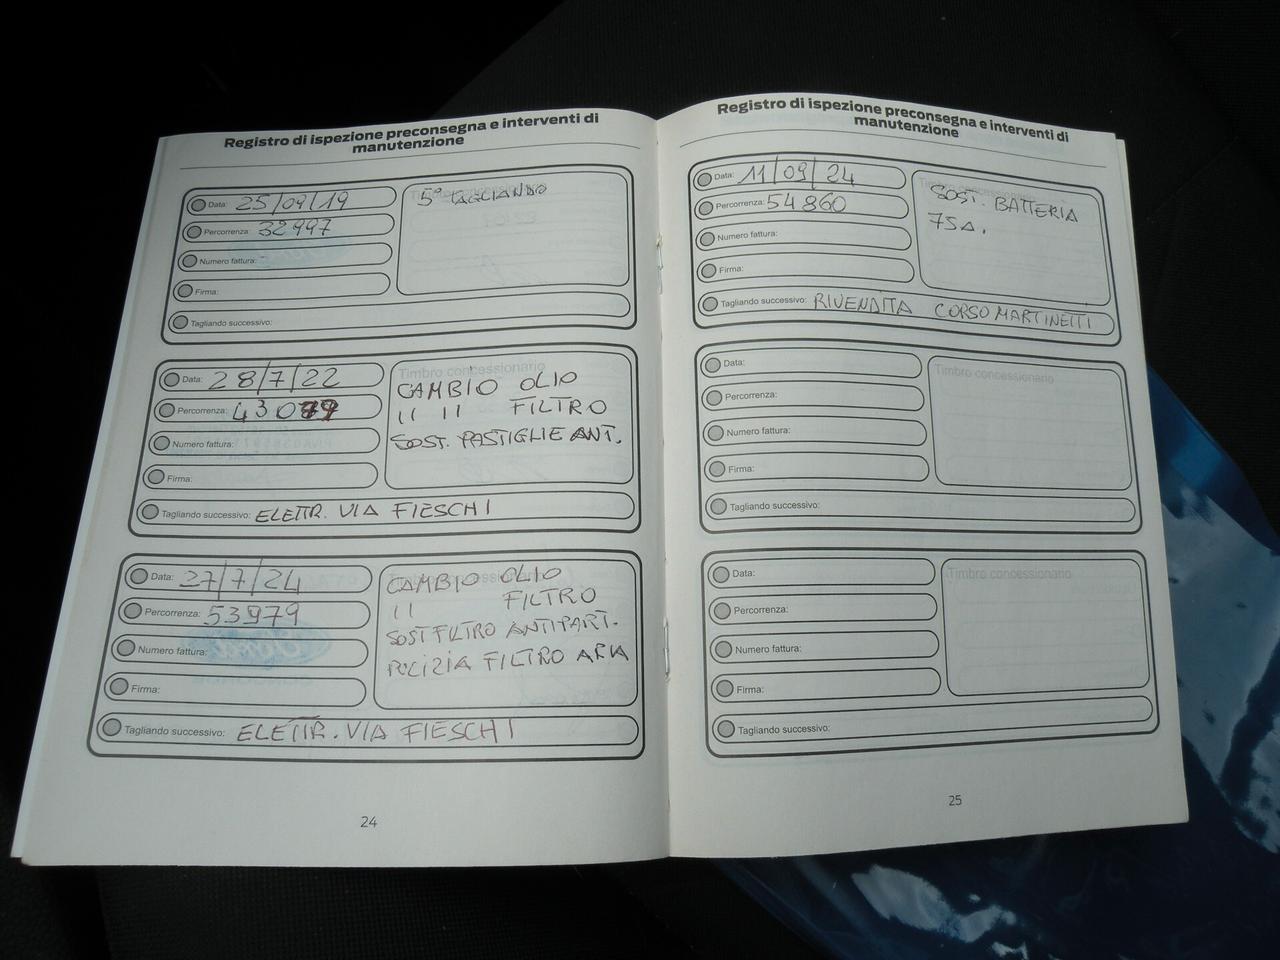 Registro di ispezione preconsegna e interventi di
manutenzione
Data: 25/09/19
Percorrenza: 32997
Numero fattura:
Firma:
Tagliando successivo:
5° TAGLIANDO
Data: 28/7/22
Percorrenza: 43079
Numero fattura:
Firma:
Tagliando successivo: ELETTR. VIA FIESCHI
Timbro concessionario
CAMBIO OLIO
" " FILTRO
SOST. PASTIGLIE ANT.
Data: 27/7/24
Percorrenza: 53979
Numero fattura:
Firma:
Tagliando successivo: ELETTR. VIA FIESCHI
CAMBIO OLIO
" FILTRO
SOST FILTRO ANTIPART.
PULIZIA FILTRO ARIA
24
Registro di ispezione preconsegna e interventi di
manutenzione
Data: 11/09/24
Percorrenza: 54860
Numero fattura:
Firma:
Tagliando successivo: RIVENDITA CORSO MARTINETTI
Timbro concessionario
SOST. BATTERIA
75A.
Data:
Percorrenza:
Numero fattura:
Firma:
Tagliando successivo:
Timbro concessionario
Data:
Percorrenza:
Numero fattura:
Firma:
Tagliando successivo:
Timbro concessionario
25